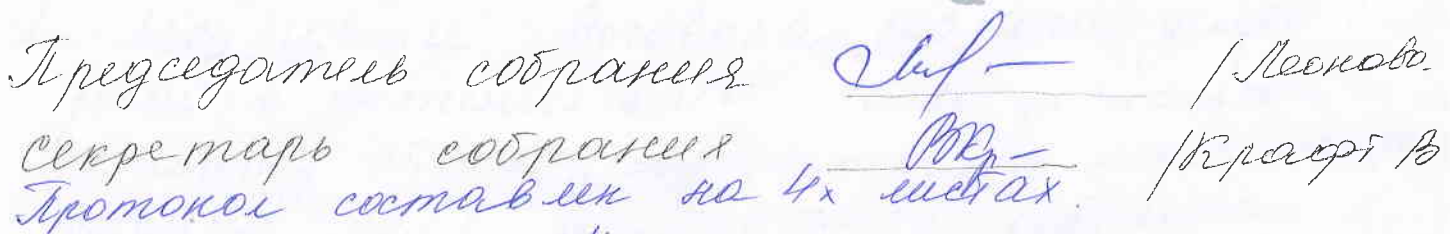 Председатель собрания /Леонова
секретарь собрания /Крафт В
Протокол составлен на 4х листах.